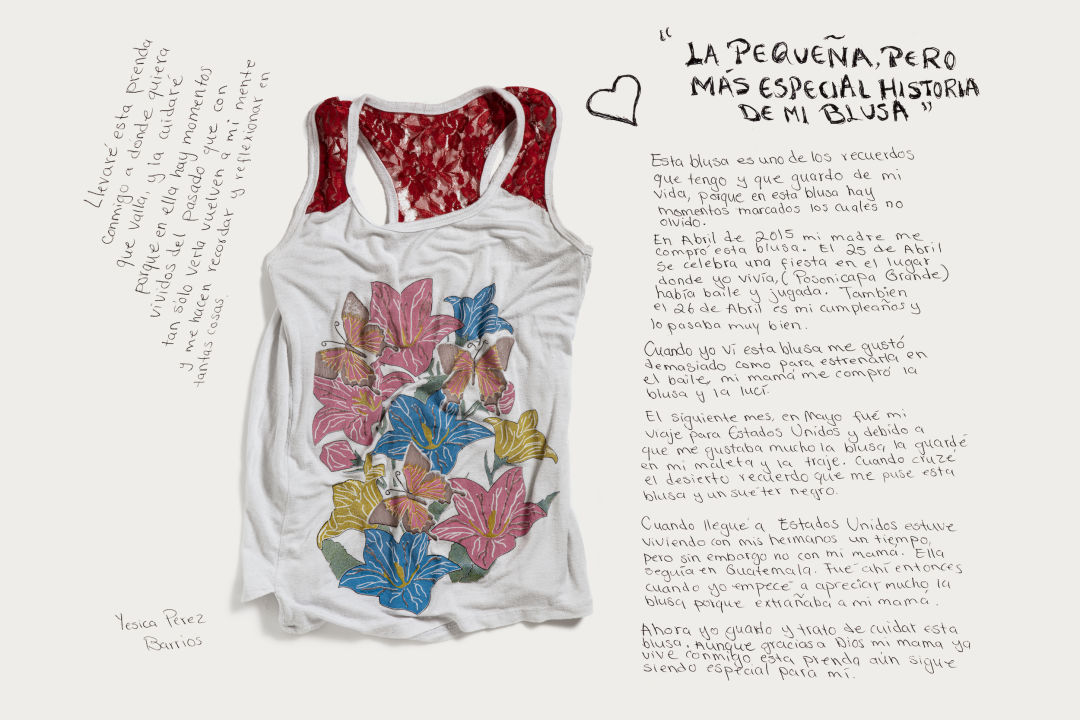 Llevaré esta prenda
conmigo a dónde quiera
que valla, y la cuidaré
porque en ella hay momentos
vividos del pasado que con
tan sólo verla vuelven a mi mente
y me hacen recordar y reflexionar en
tantas cosas.
"LA PEQUEÑA, PERO
MÁS ESPECIAL HISTORIA
DE MI BLUSA"
Esta blusa es uno de los recuerdos
que tengo y que guardo de mi
vida, porque en esta blusa hay
momentos marcados los cuales no
olvido.
En Abril de 2015 mi madre me
compró esta blusa. El 25 de Abril
se celebra una fiesta en el lugar
donde yo vivía, (Posonicapa Grande)
había baile y jugada. Tambien
el 26 de Abril es mi cumpleaños y
lo pasaba muy bien.
Cuando yo ví esta blusa me gustó
demasiado como para estrenarla en
el baile, mi mamá me compró la
blusa y la lucí.
El siguiente mes, en Mayo fué mi
viaje para Estados Unidos y debido a
que me gustaba mucho la blusa la guardé
en mi maleta y la traje. Cuando cruzé
el desierto recuerdo que me puse esta
blusa y un suéter negro.
Cuando llegué a Estados Unidos estuve
viviendo con mis hermanos un tiempo,
pero sin embargo no con mi mamá. Ella
seguía en Guatemala. Fué ahí entonces
cuando yo empecé a apreciar mucho la
blusa porque extrañaba a mi mamá.
Ahora yo guardo y trato de cuidar esta
blusa. Aunque gracias a Dios mi mama ya
vive conmigo esta prenda aún sigue
siendo especial para mí.
Yesica Pérez
Barrios